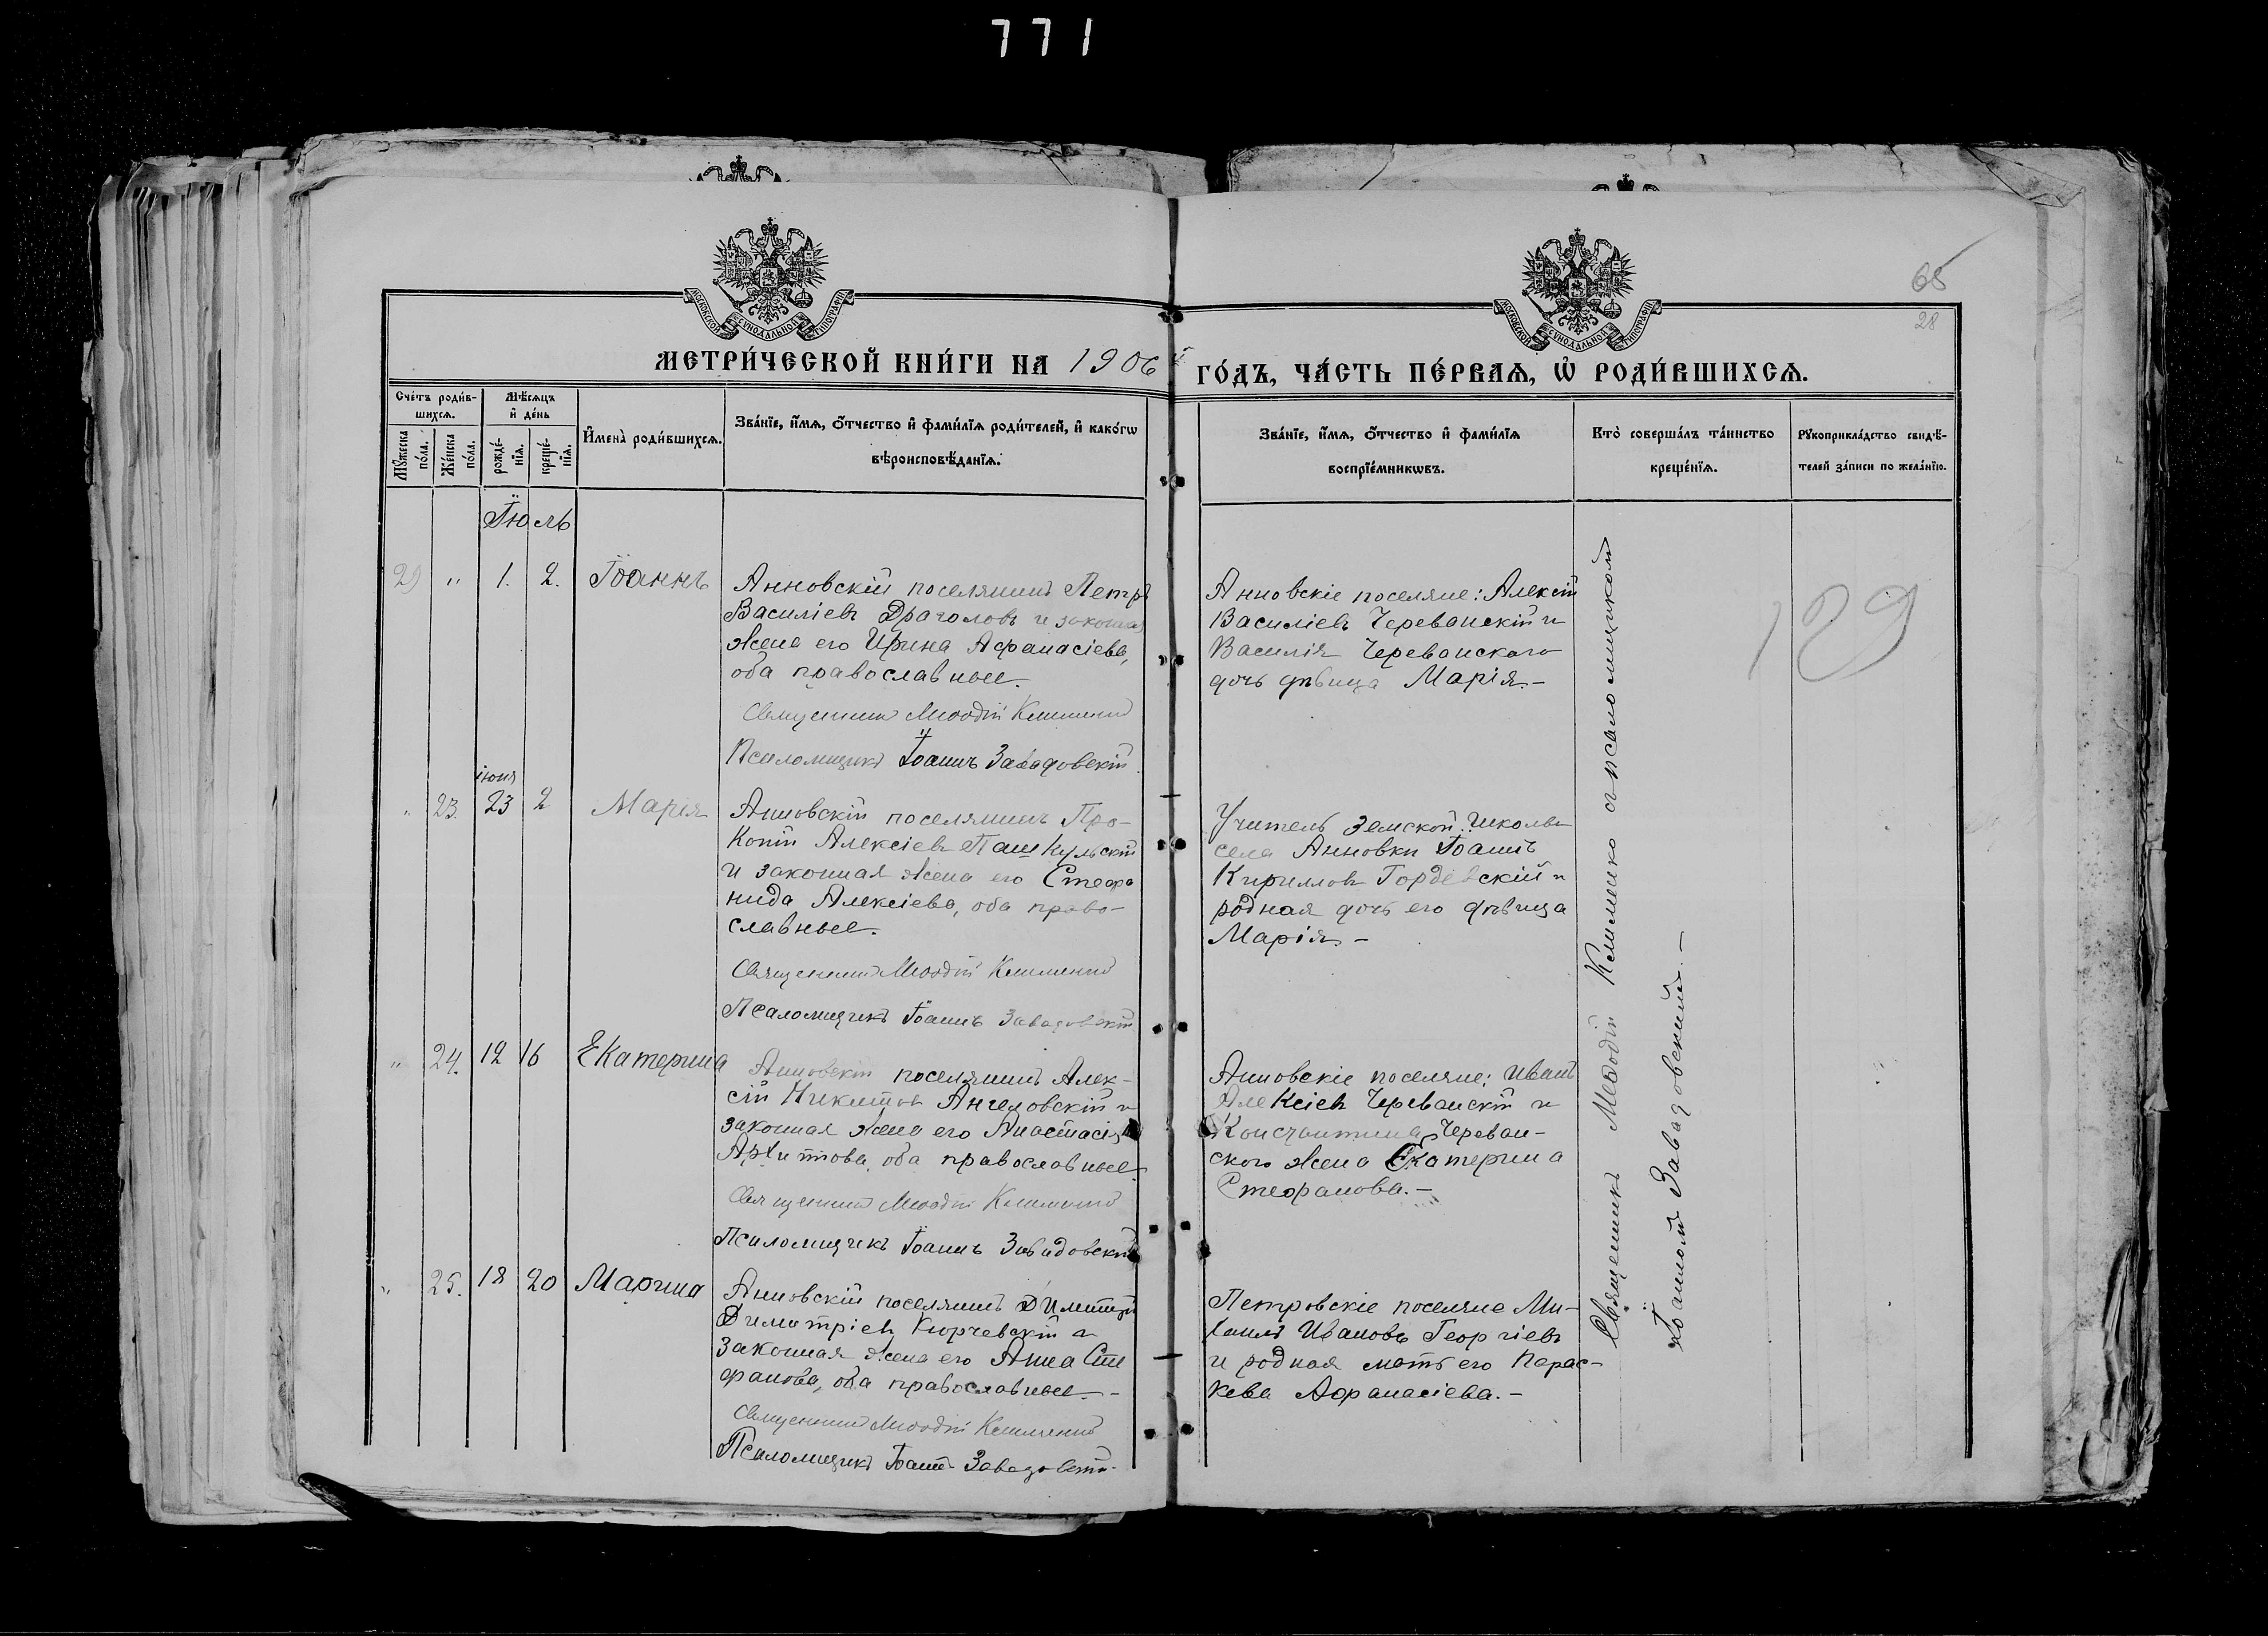 771
65
28
МОСКОВСКОЙ СѴНОДАЛЬНОЙ ТИПОГРАФІИ
МОСКОВСКОЙ СѴНОДАЛЬНОЙ ТИПОГРАФІИ
МЕТРИ́ЧЕСКОЙ КНИ́ГИ НА 1906 й ГО́ДЪ, ЧА́СТЬ ПЕ́РВАѦ, Ѡ҆ РОДИ́ВШИХСѦ.
Сче́тъ роди́в-
шихсѧ.
Мꙋ́жеска по́ла.
Же́нска по́ла.
Мѣ́сѧцъ
и҆ де́нь
рожде́-
нїѧ.
креще́-
нїѧ.
И҆мена̀ роди́вшихсѧ.
Зва́нїе, и҆́мѧ, ѻ҆́тчество и҆ фами́лїѧ роди́телей, и҆ како́гѡ
вѣроисповѣ́данїѧ.
Зва́нїе, и҆́мѧ, ѻ҆́тчество и҆ фами́лїѧ
воспрїе́мникѡвъ.
Кто̀ соверша́лъ та́инство
креще́нїѧ.
Рꙋкоприкла́дство свидѣ́-
телей за́писи по жела́нїю.
Іюль
29 " 1. 2. Іоаннъ
Анновскій поселянинъ Петръ
Василіевъ Драголовъ и законная
жена его Ирина Афанасіева,
оба православные.
Священникъ Меѳодій Клименко
Псаломщикъ Іоаннъ Завадовскій
Анновскіе поселяне: Алексій
Василіевъ Череванскій и
Василія Череванскаго
дочь дѣвица Марія.-
129
іюня
" 23. 23 2 Марія
Анновскій поселянинъ Про-
копій Алексіевъ Пашкульскій
и законная жена его Стефа
нида Алексіева, оба право-
славные.
Священникъ Меѳодій Клименко
Псаломщикъ Іоаннъ Завадовскій
Учитель Земской школы
села Анновки Іоаннъ
Кирилловъ Гордіевскій и
родная дочь его дѣвица
Марія.-
" 24. 12 16 Екатерина
Анновскій поселянинъ Алек-
сій Никитовъ Ангеловскій и
законная жена его Анастасія
Архипова, оба православные
Священникъ Меѳодій Клименко
Псаломщикъ Іоаннъ Завадовскій
Анновскіе поселяне: Иванъ
Алексіевъ Череванскій и
Константина Череван-
ского жена Екатерина
Стефанова.-
" 25. 18 20 Марина
Анновскій поселянинъ Димитрій
Димитріевъ Кюрчевскій и
законная жена его Анна Сте
фанова, оба православные.-
Священникъ Меѳодій Клименко
Псаломщикъ Іоаннъ Завадовскій
Петровскіе поселяне Ми-
хаилъ Ивановъ Георгіевъ
и родная мать его Парас-
кева Афанасіева.-
Священникъ Меѳодій Клименко съ псаломщикомъ
Іоанномъ Завадовскимъ.-